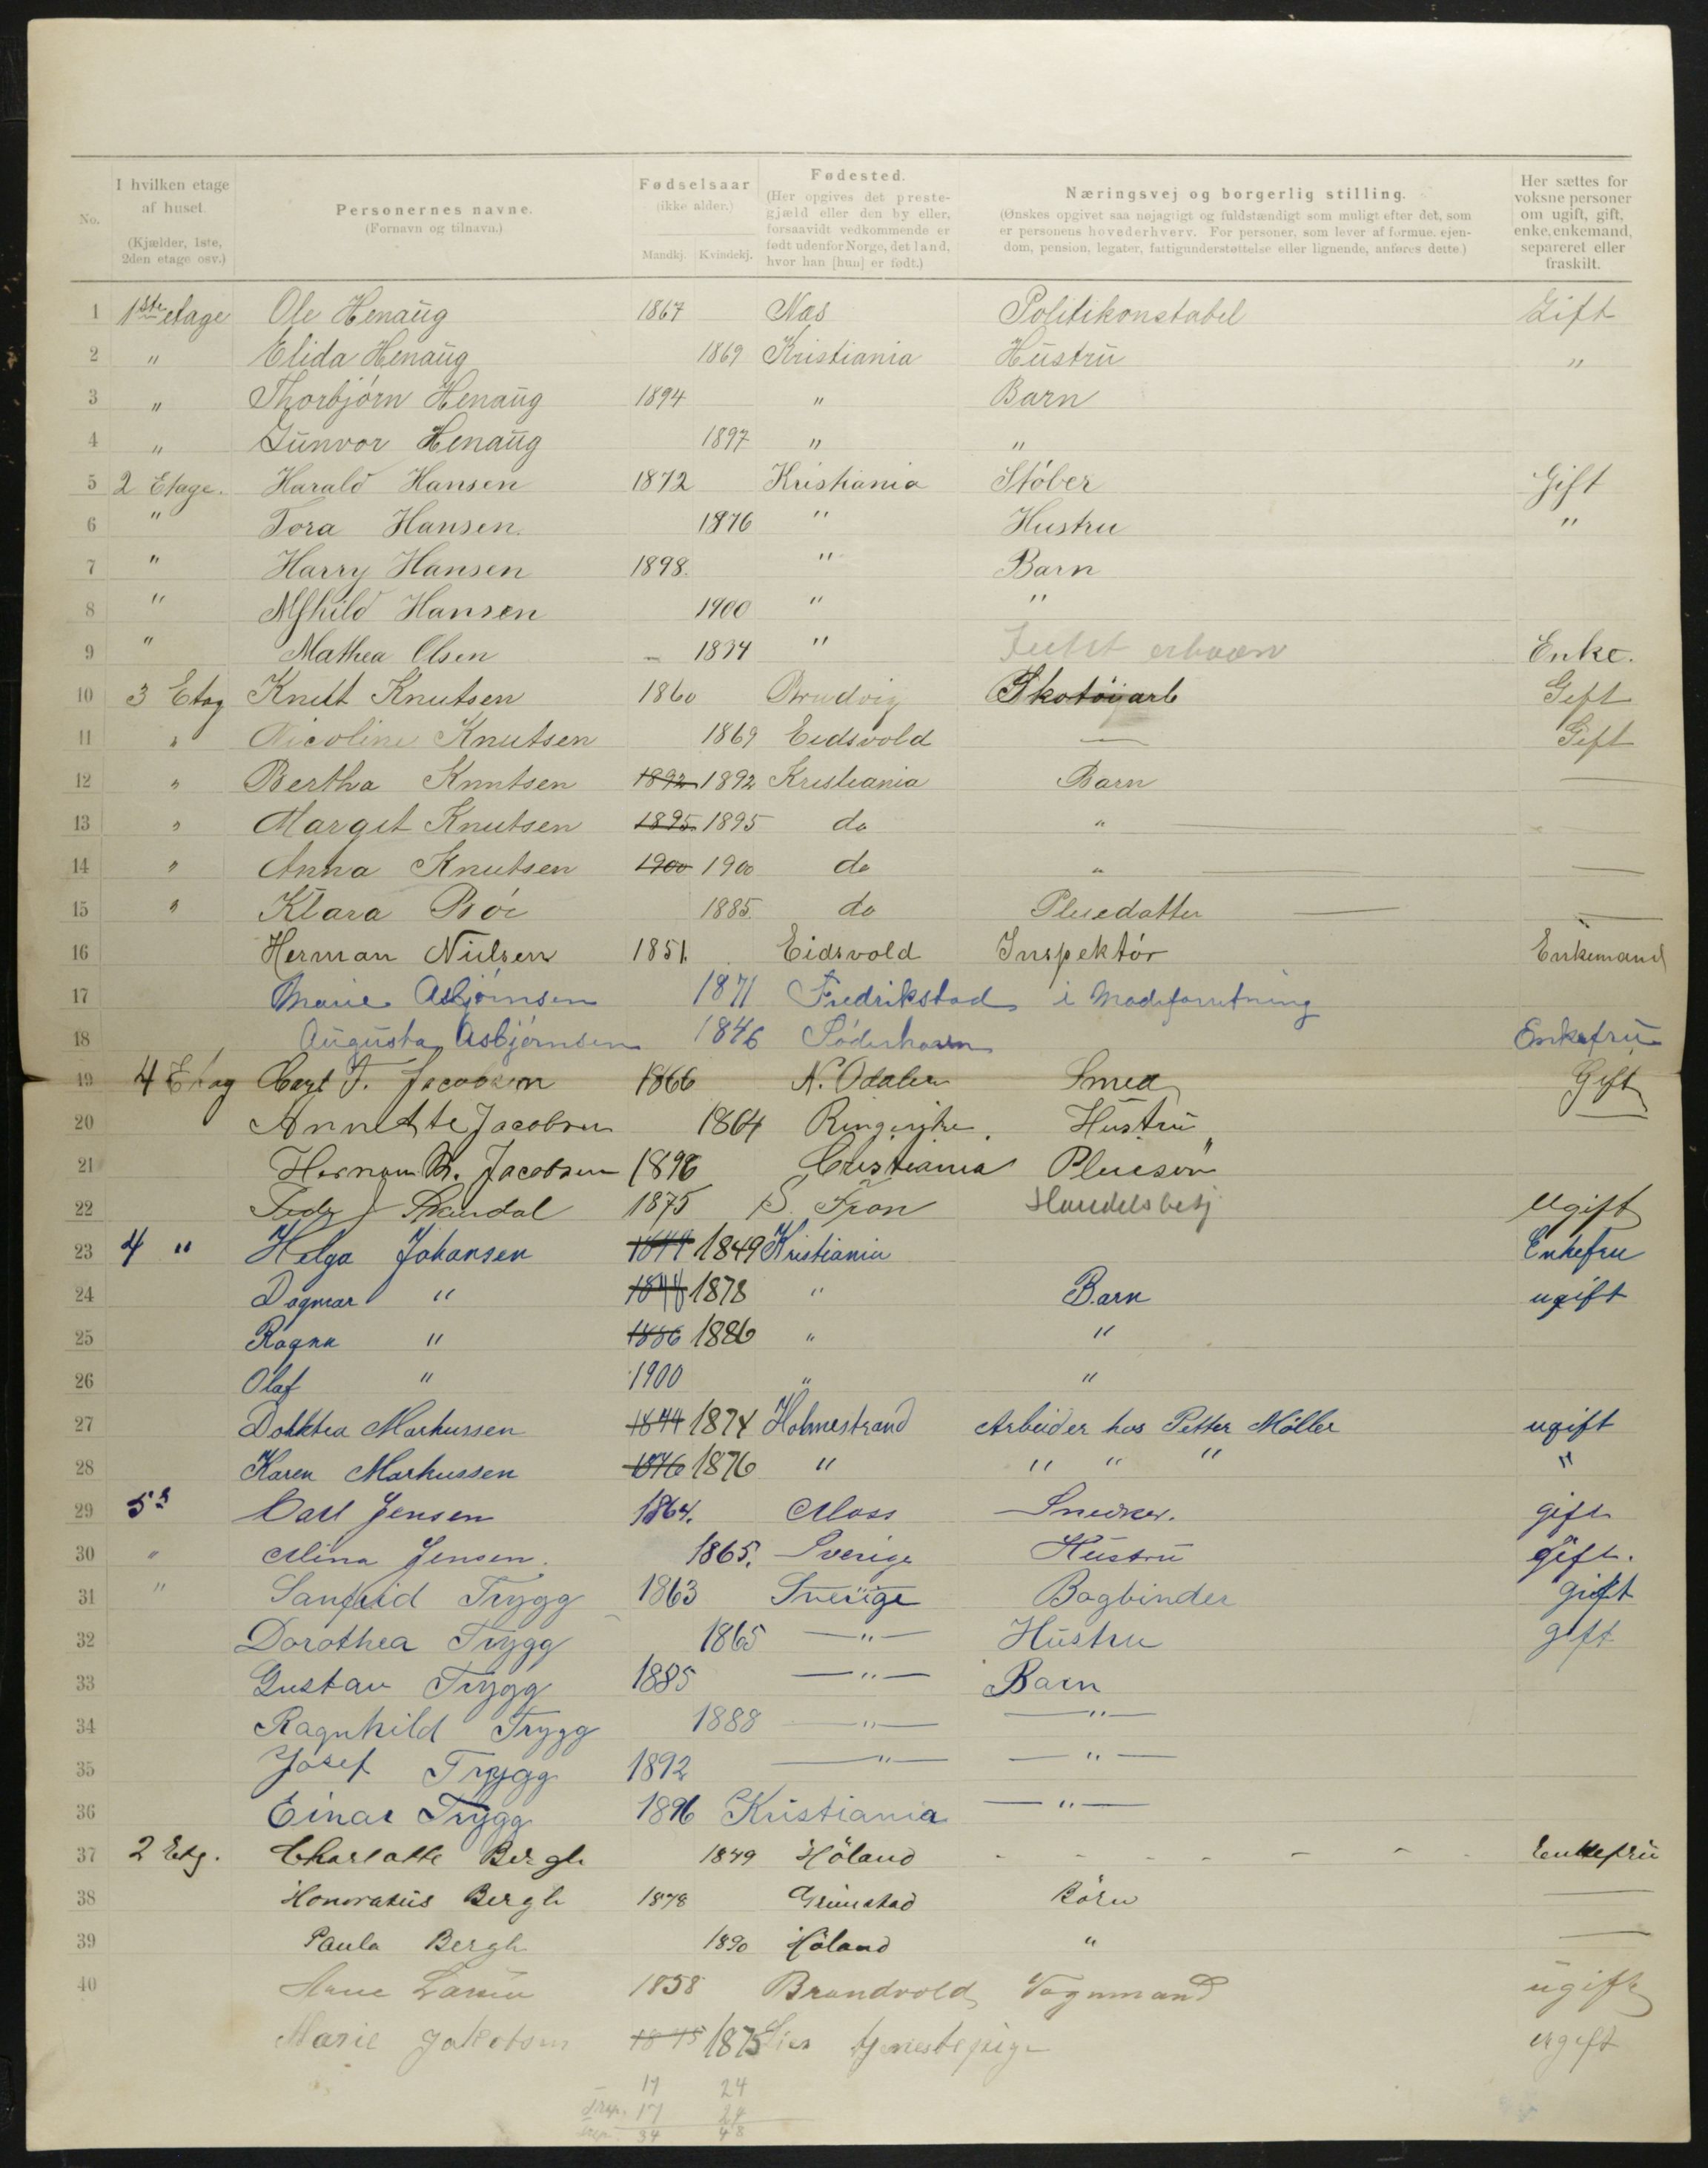 No. I hvilken etage af huset. (Kjælder, 1ste, 2den etage osv.) Personernes navne. (Fornavn og tilnavn.) Fødselsaar (ikke alder.) Mandkj. Kvindekj. Fødested. (Her opgives det prestegjæld eller den by eller, forsaavidt vedkommende er født udenfor Norge, det land, hvor han [hun] er født.) Næringsvej og borgerlig stilling. (Ønskes opgivet saa nøjagtigt og fuldstændigt som muligt efter det, som er personens hovederhverv. For personer, som lever af formue, ejendom, pension, legater, fattigunderstøttelse eller lignende, anføres dette.) Her sættes for voksne personer om ugift, gift, enke, enkemand, separeret eller fraskilt.
1 1ste etage Ole Henaug 1867 Næs Politikonstabel Gift
2 " Elida Henaug 1869 Kristiania Hustru "
3 " Thorbjørn Henaug 1894 " Barn
4 " Gunvor Henaug 1897 " "
5 2 Etage. Harald Hansen 1872 Kristiania Støber Gift
6 " Tora Hansen. 1876 " Hustru "
7 " Harry Hansen 1898. " Barn
8 " Alfhild Hansen 1900 " "
9 " Mathea Olsen – 1834 " Enke.
10 3 Etag Knut Knutsen 1860 Brudvig Skotøiarb Gift
11 " Nicoline Knutsen 1869 Eidsvold — Gift
12 " Bertha Knutsen 1892 1892 Kristiania Barn —
13 " Margit Knutsen 1895 1895 do " —
14 " Anna Knutsen 1900 1900 do " —
15 " Klara Bøe 1885. do Pleiedatter —
16 Herman Nielsen 1851. Eidsvold Inspektør Enkemand
17 Marie Asbjørnsen 1871 Fredrikstad i Modeforretning
18 Augusta Asbjørnsen 1846 Söderhamn Enkefru
19 4 Etag Carl F. Jacobsen 1866 N. Odalen Smed Gift
20 Annette Jacobsen 1864 Ringerike. Hustru "
21 Herman Jacobsen 1896 Cristiania Pleiesøn
22 Skurdal 1875 S. Fron Handelsbetj Ugift
23 4 " Helga Johansen 1849 Kristiania Enkefru
24 Dagmar " 1878 " Barn ugift
25 Ragna " 1886 1886 " "
26 Olaf " 1900 " "
27 Markussen 1874 Holmestrand Arbeider hos Petter Møller ugift
28 Karen Markussen 1876 1876 " " " " "
29 Carl Jensen 1864. Moss Snedker. gift
30 " Mina Jensen. 1865. Sverige Hustru gift.
31 " Sanfrid Trygg 1863 Sverige Bogbinder gift
32 Dorothea Trygg 1865 —"— Hustru gift
33 Gustav Trygg 1885 —"— Barn
34 Ragnhild Trygg 1888 —"— —"—
35 Josef Trygg 1892 —"— —"—
36 Einar Trygg 1896 Kristiania —"—
37 2 Etg. Charlotte Bergh 1849 Höland - - - - - - - Enkefru
38 Honoratus Bergh 1878 Grimstad Börn —
39 Paula Bergh 1890 Höland " —
40 1858 Brandvold Vognmand ugift
Marie Jakobsen 1875 1875 tjenestepige ugift
17 24
17 24
34 48